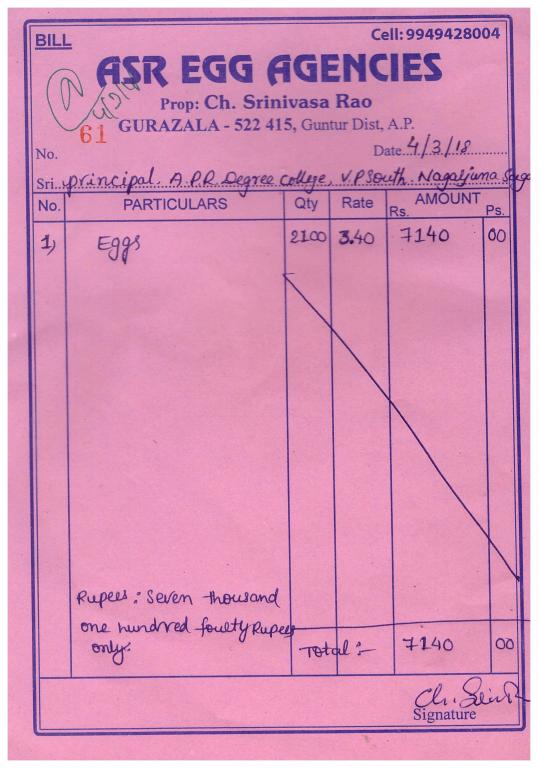 BILL
Cell: 9949428004
ASR EGG AGENCIES
Prop: Ch. Srinivasa Rao
61
GURAZALA - 522 415, Guntur Dist, A.P.
No.
Date 4/3/18
Sri. principal. A.P.R. Degree college, V.P South. Nagarjuna Saga
No. PARTICULARS Qty Rate AMOUNT
Rs. Ps.
1) Eggs 2100 3.40 7140 00
Rupees: Seven thousand
one hundred foulty Rupees
only.
Total :- 7140 00
Signature